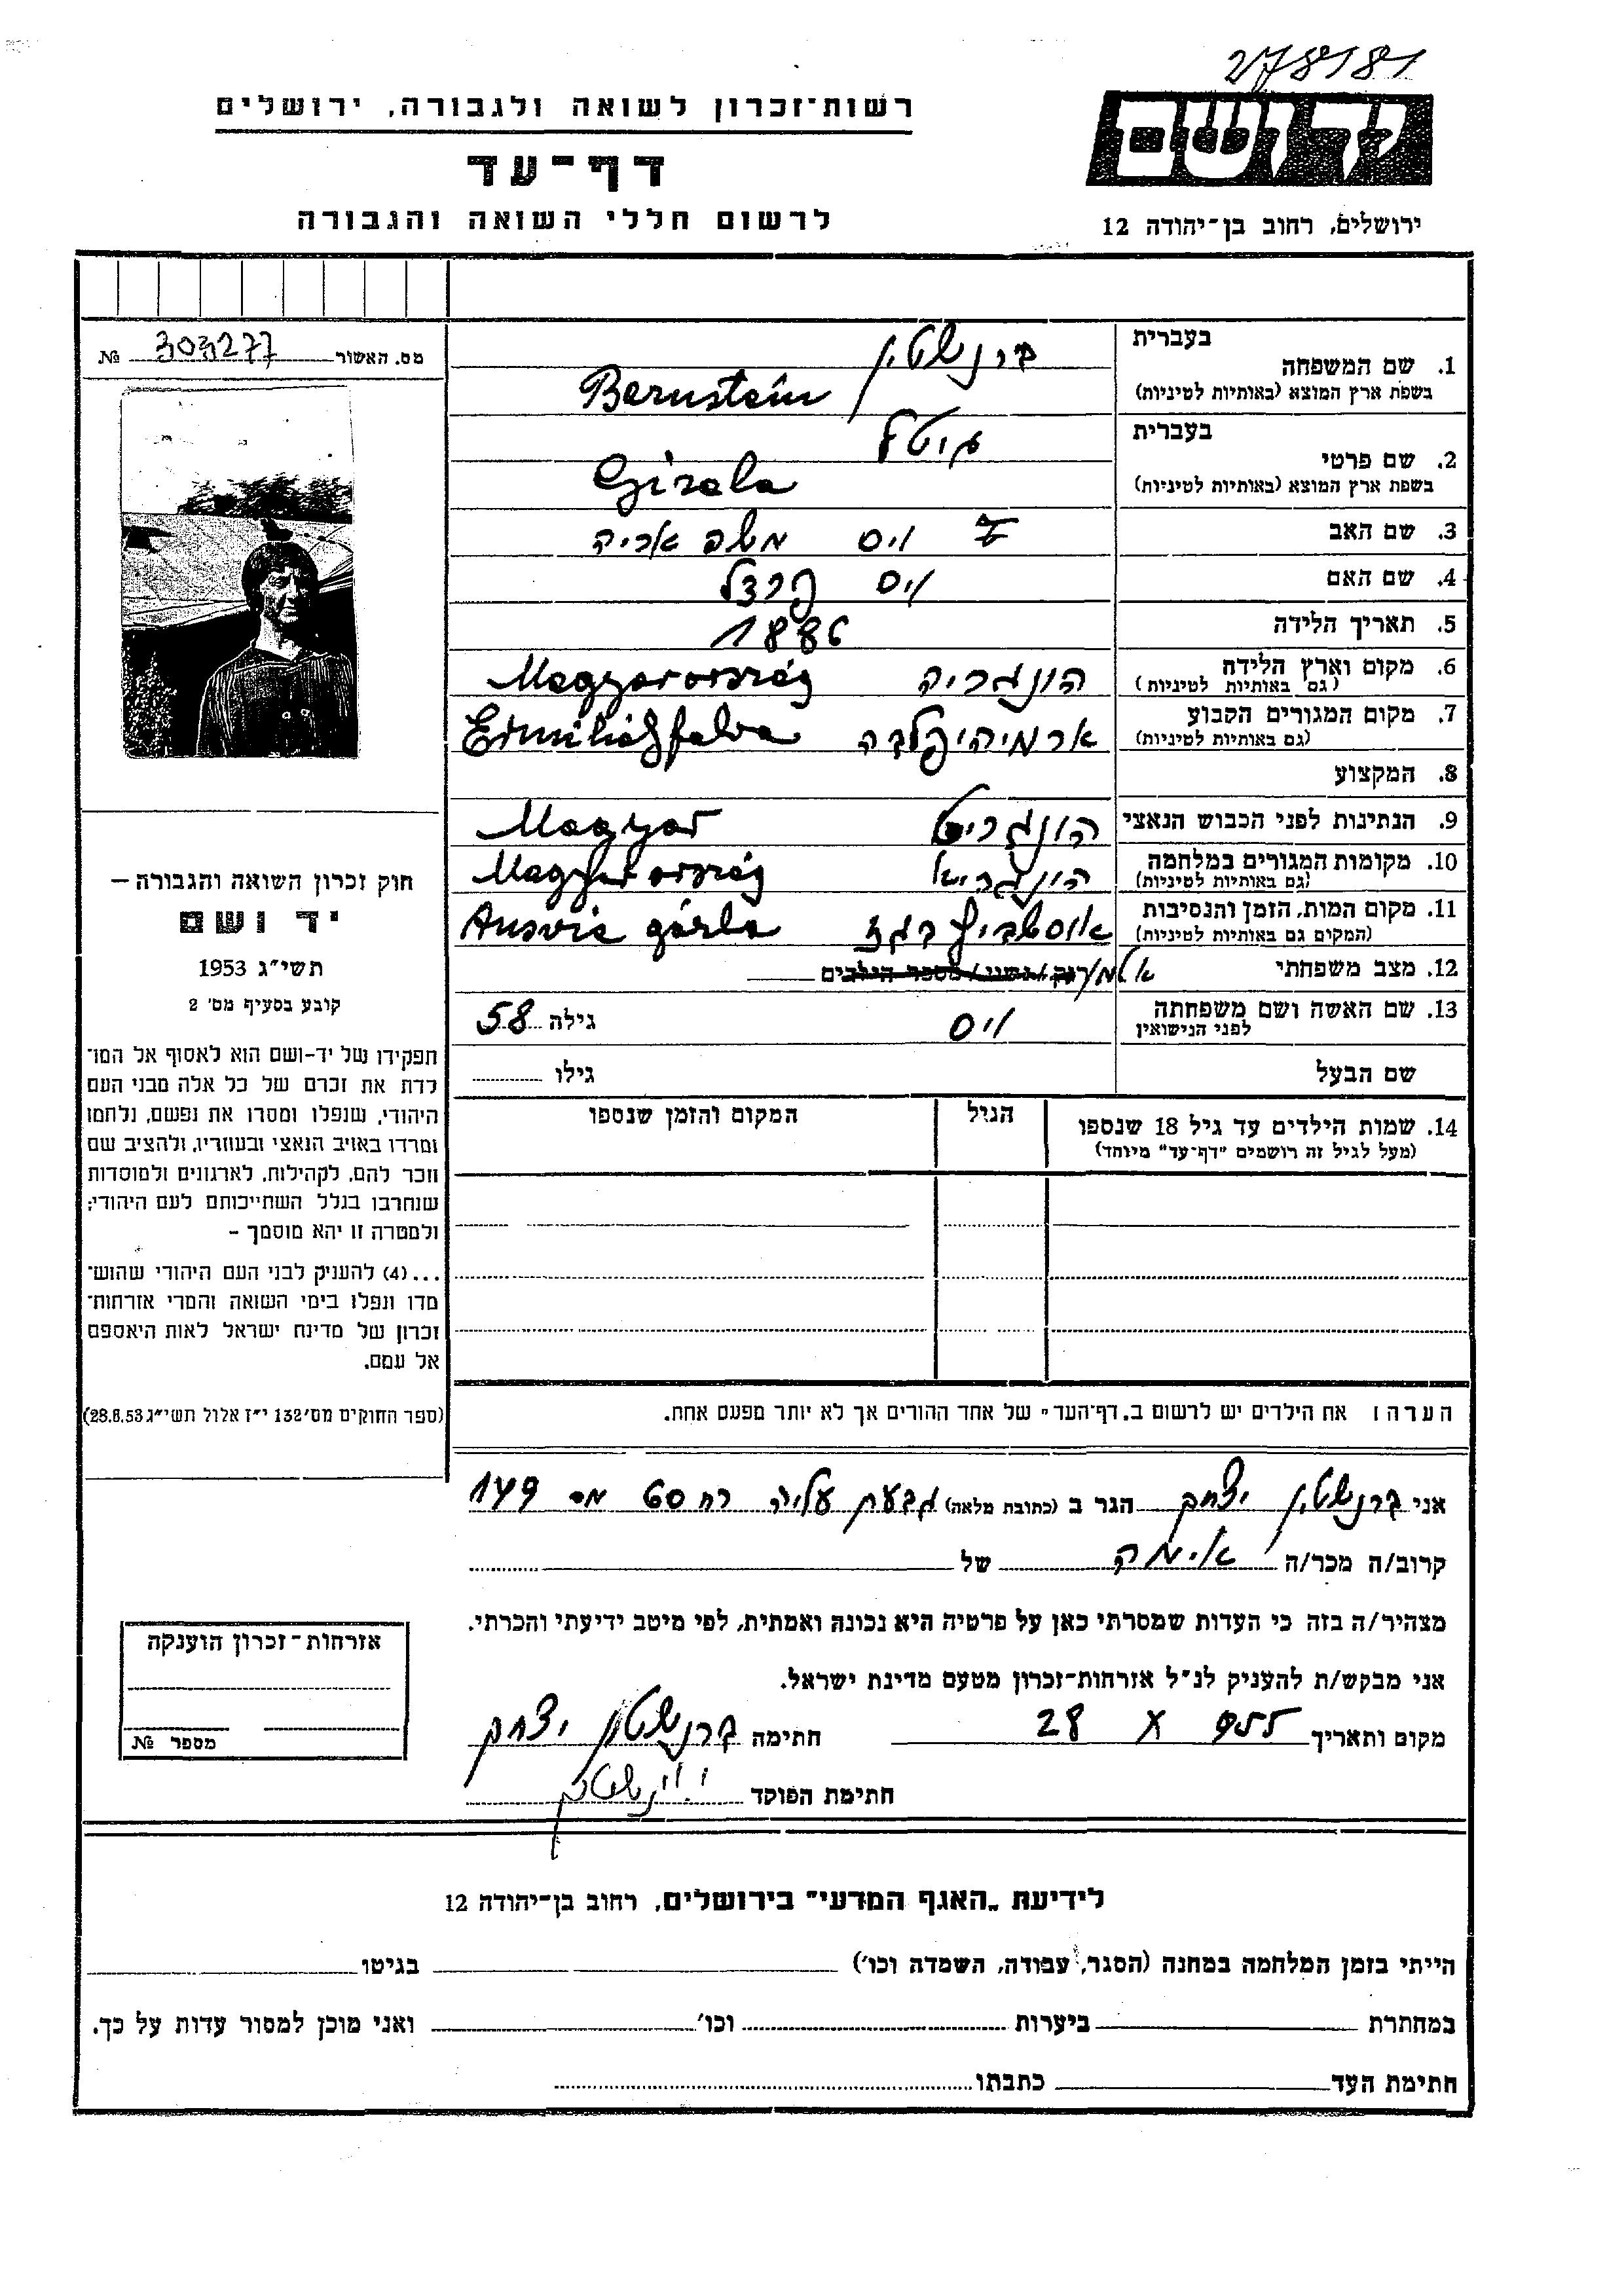 278181
רשות־זכרון לשואה ולגבורה, ירושלים
יד ושם
דף־עד
לרשום חללי השואה והגבורה
ירושלים, רחוב בן־יהודה 12
מס. האשור 303277 №
בעברית ברנשטין
1. שם המשפחה
בשפת ארץ המוצא (באותיות לטיניות) Bernstein
בעברית גיטל
2. שם פרטי
בשפת ארץ המוצא (באותיות לטיניות) Gizela
3. שם האב ויס משה אריה
4. שם האם ויס פרדל
5. תאריך הלידה 1886
6. מקום וארץ הלידה הונגריה Magyarország
(גם באותיות לטיניות)
7. מקום המגורים הקבוע ארמיהיפלבה Érmihályfalva
(גם באותיות לטיניות)
8. המקצוע
9. הנתינות לפני הכבוש הנאצי הונגרית Magyar
10. מקומות המגורים במלחמה הונגריא Magyarország
(גם באותיות לטיניות)
11. מקום המות, הזמן והנסיבות אוסטביץ בגז Ausvic gázba
(המקום גם באותיות לטיניות)
12. מצב משפחתי אלמן רוק / נשוי / מספר הילדים
13. שם האשה ושם משפחתה ויס גילה 58
לפני הנישואין
שם הבעל גילו
14. שמות הילדים עד גיל 18 שנספו הגיל המקום והזמן שנספו
(מעל לגיל זה רושמים "דף־עד" מיוחד)
הערה: את הילדים יש לרשום ב„דף־העד" של אחד ההורים אך לא יותר מפעם אחת.
חוק זכרון השואה והגבורה –
יד ושם
תשי"ג 1953
קובע בסעיף מס' 2
תפקידו של יד-ושם הוא לאסוף אל המו־
לדת את זכרם של כל אלה מבני העם
היהודי, שנפלו ומסרו את נפשם, נלחמו
ומרדו באויב הנאצי ובעוזריו, ולהציב שם
וזכר להם, לקהילות, לארגונים ולמוסדות
שנחרבו בגלל השתייכותם לעם היהודי;
ולמטרה זו יהא מוסמך –
...(4) להעניק לבני העם היהודי שהוש־
מדו ונפלו בימי השואה והמרי אזרחות־
זכרון של מדינת ישראל לאות היאספם
אל עמם.
(ספר החוקים מס' 132 י"ז אלול תשי"ג 28.8.53)
אני ברנשטין יצחק הגר ב (כתובת מלאה) גבעת עליה רח 60 מס 149
קרוב/ה מכר/ה אימה של
מצהיר/ה בזה כי העדות שמסרתי כאן על פרטיה היא נכונה ואמתית, לפי מיטב ידיעתי והכרתי.
אני מבקש/ת להעניק לנ"ל אזרחות־זכרון מטעם מדינת ישראל.
מקום ותאריך 955 X 28 חתימה ברנשטין יצחק
חתימת הפוקד
אזרחות־זכרון הוענקה
מספר №
לידיעת „האגף המדעי" בירושלים, רחוב בן־יהודה 12
הייתי בזמן המלחמה במחנה (הסגר, עבודה, השמדה וכו') בגיטו
במחתרת ביערות וכו' ואני מוכן למסור עדות על כך.
חתימת העד כתבתו